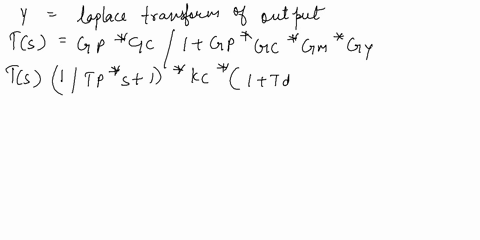 Y = laplace transform of output
T(s) = GP * GC / 1 + GP * GC * Gm * Gy
T(s) (1 | TP * s + 1) * KC * (1 + Td